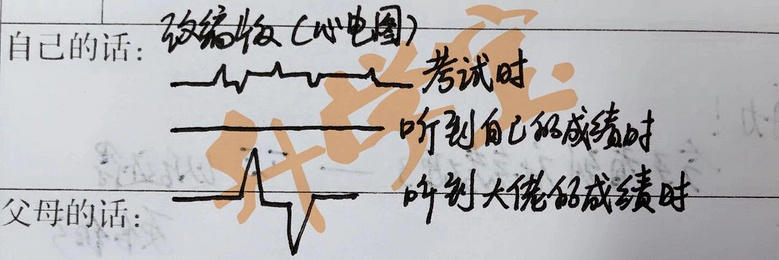 改编版(心电图)
自己的话:
考试时
听到自己的成绩时
听到大佬的成绩时
父母的话: